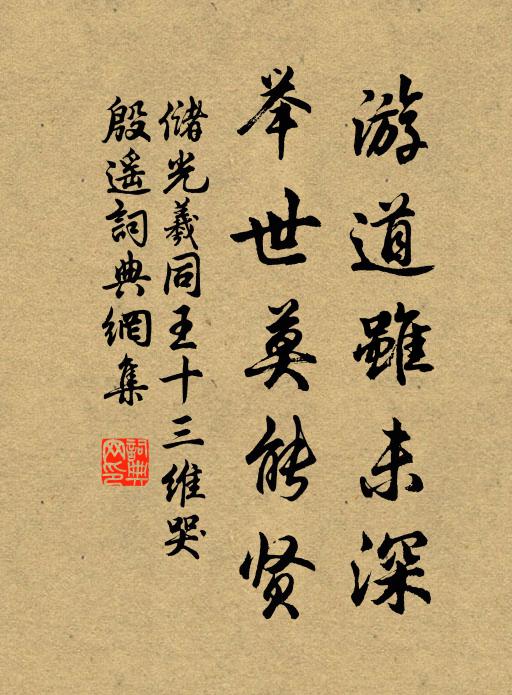 游道雖未深
举世莫能贤
储光羲同王十三维哭
殷遥詞典網集
詞典网印